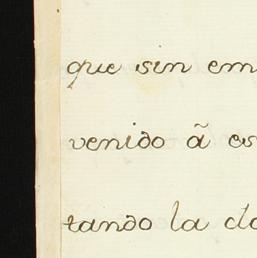 que sin em
venido ã es
tando la do